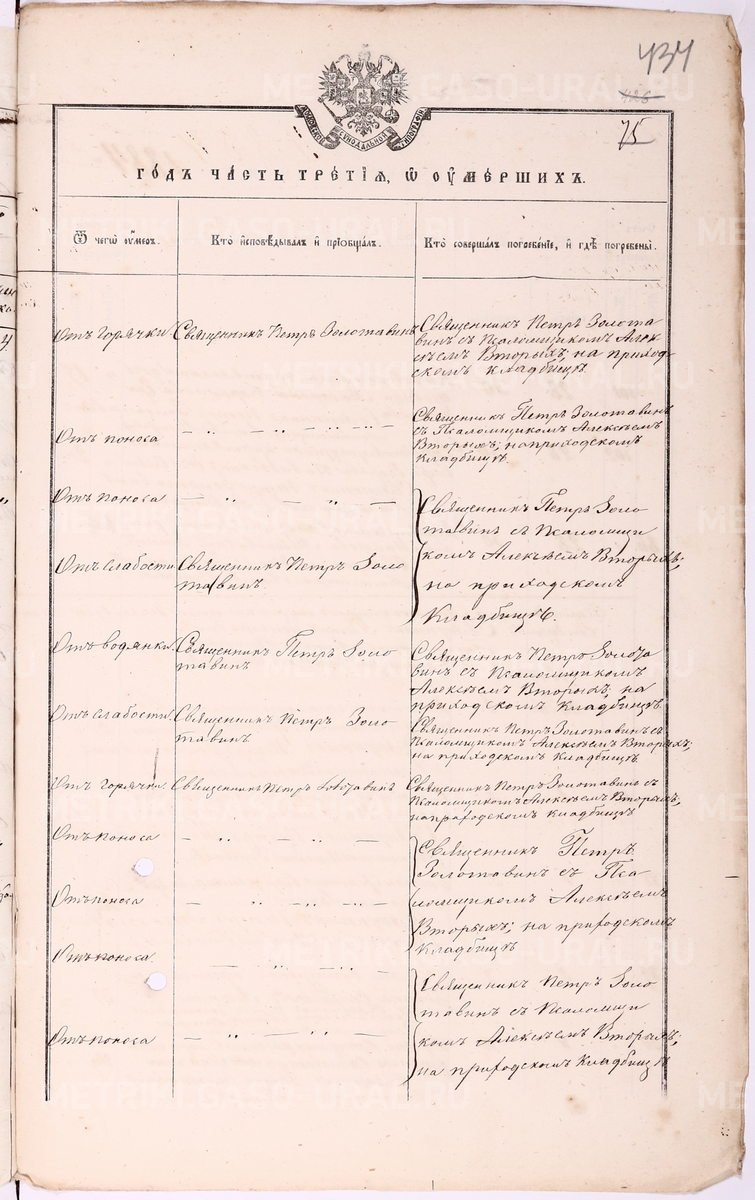 434
426
75
МОСКОВСКОЙ СУНОДАЛЬНОЙ ТИПОГРАФІИ
ГО́ДЪ ЧА́СТЬ ТРЕ́ТІѦ, Ѿ ОУ҆МЕ́РШИХЪ.
Ѿ чегѡ̀ ᲂу҆́меръ.
Кто̀ и҆сповѣ́дывалъ и҆ прїѻбща́лъ.
Кто̀ соверша́лъ погребе́нїе, и҆ гдѣ̀ погребены̀.
Отъ горячки
Священникъ Петръ Золотавинъ
Священникъ Петръ Золота
винъ съ Псаломщикомъ Алек
сѣемъ Вторыхъ; на приход
скомъ кладбищѣ
Отъ поноса
— „ — „ — „ — „ —
Священникъ Петръ Золотавинъ
съ Псаломщикомъ Алексѣемъ
Вторыхъ; на приходскомъ
кладбищѣ
Отъ поноса
— „ — „ —
Священникъ Петръ Золо
тавинъ съ Псаломщи
комъ Алексѣемъ Вторыхъ;
на приходскомъ
Кладбищѣ.
Отъ слабости
Священникъ Петръ Золо
тавинъ
Отъ водянки
Священникъ Петръ Золо
тавинъ
Священникъ Петръ Золота
винъ съ Псаломщикомъ
Алексѣемъ Вторыхъ; на
приходскомъ Кладбищѣ
Отъ слабости
Священникъ Петръ Золо
тавинъ
Священникъ Петръ Золотавинъ съ
Псаломщикомъ Алексѣемъ Вторыхъ;
на приходскомъ Кладбищѣ
Отъ горячки
Священникъ Петръ Золотавинъ
Священникъ Петръ Золотавинъ съ
Псаломщикомъ Алексѣемъ Вторыхъ;
на приходскомъ Кладбищѣ
Отъ поноса
— „ — „ —
Священникъ Петръ
Золотавинъ съ Пса
ломщикомъ Алексѣемъ
Вторыхъ; на приходскомъ
Кладбищѣ
Отъ поноса
— „ — „ —
Отъ поноса
— „ — „ —
Священникъ Петръ Золо
тавинъ съ Псаломщи
комъ Алексѣемъ Вторыхъ;
на приходскомъ Кладбищѣ
Отъ поноса
— „ — „ —